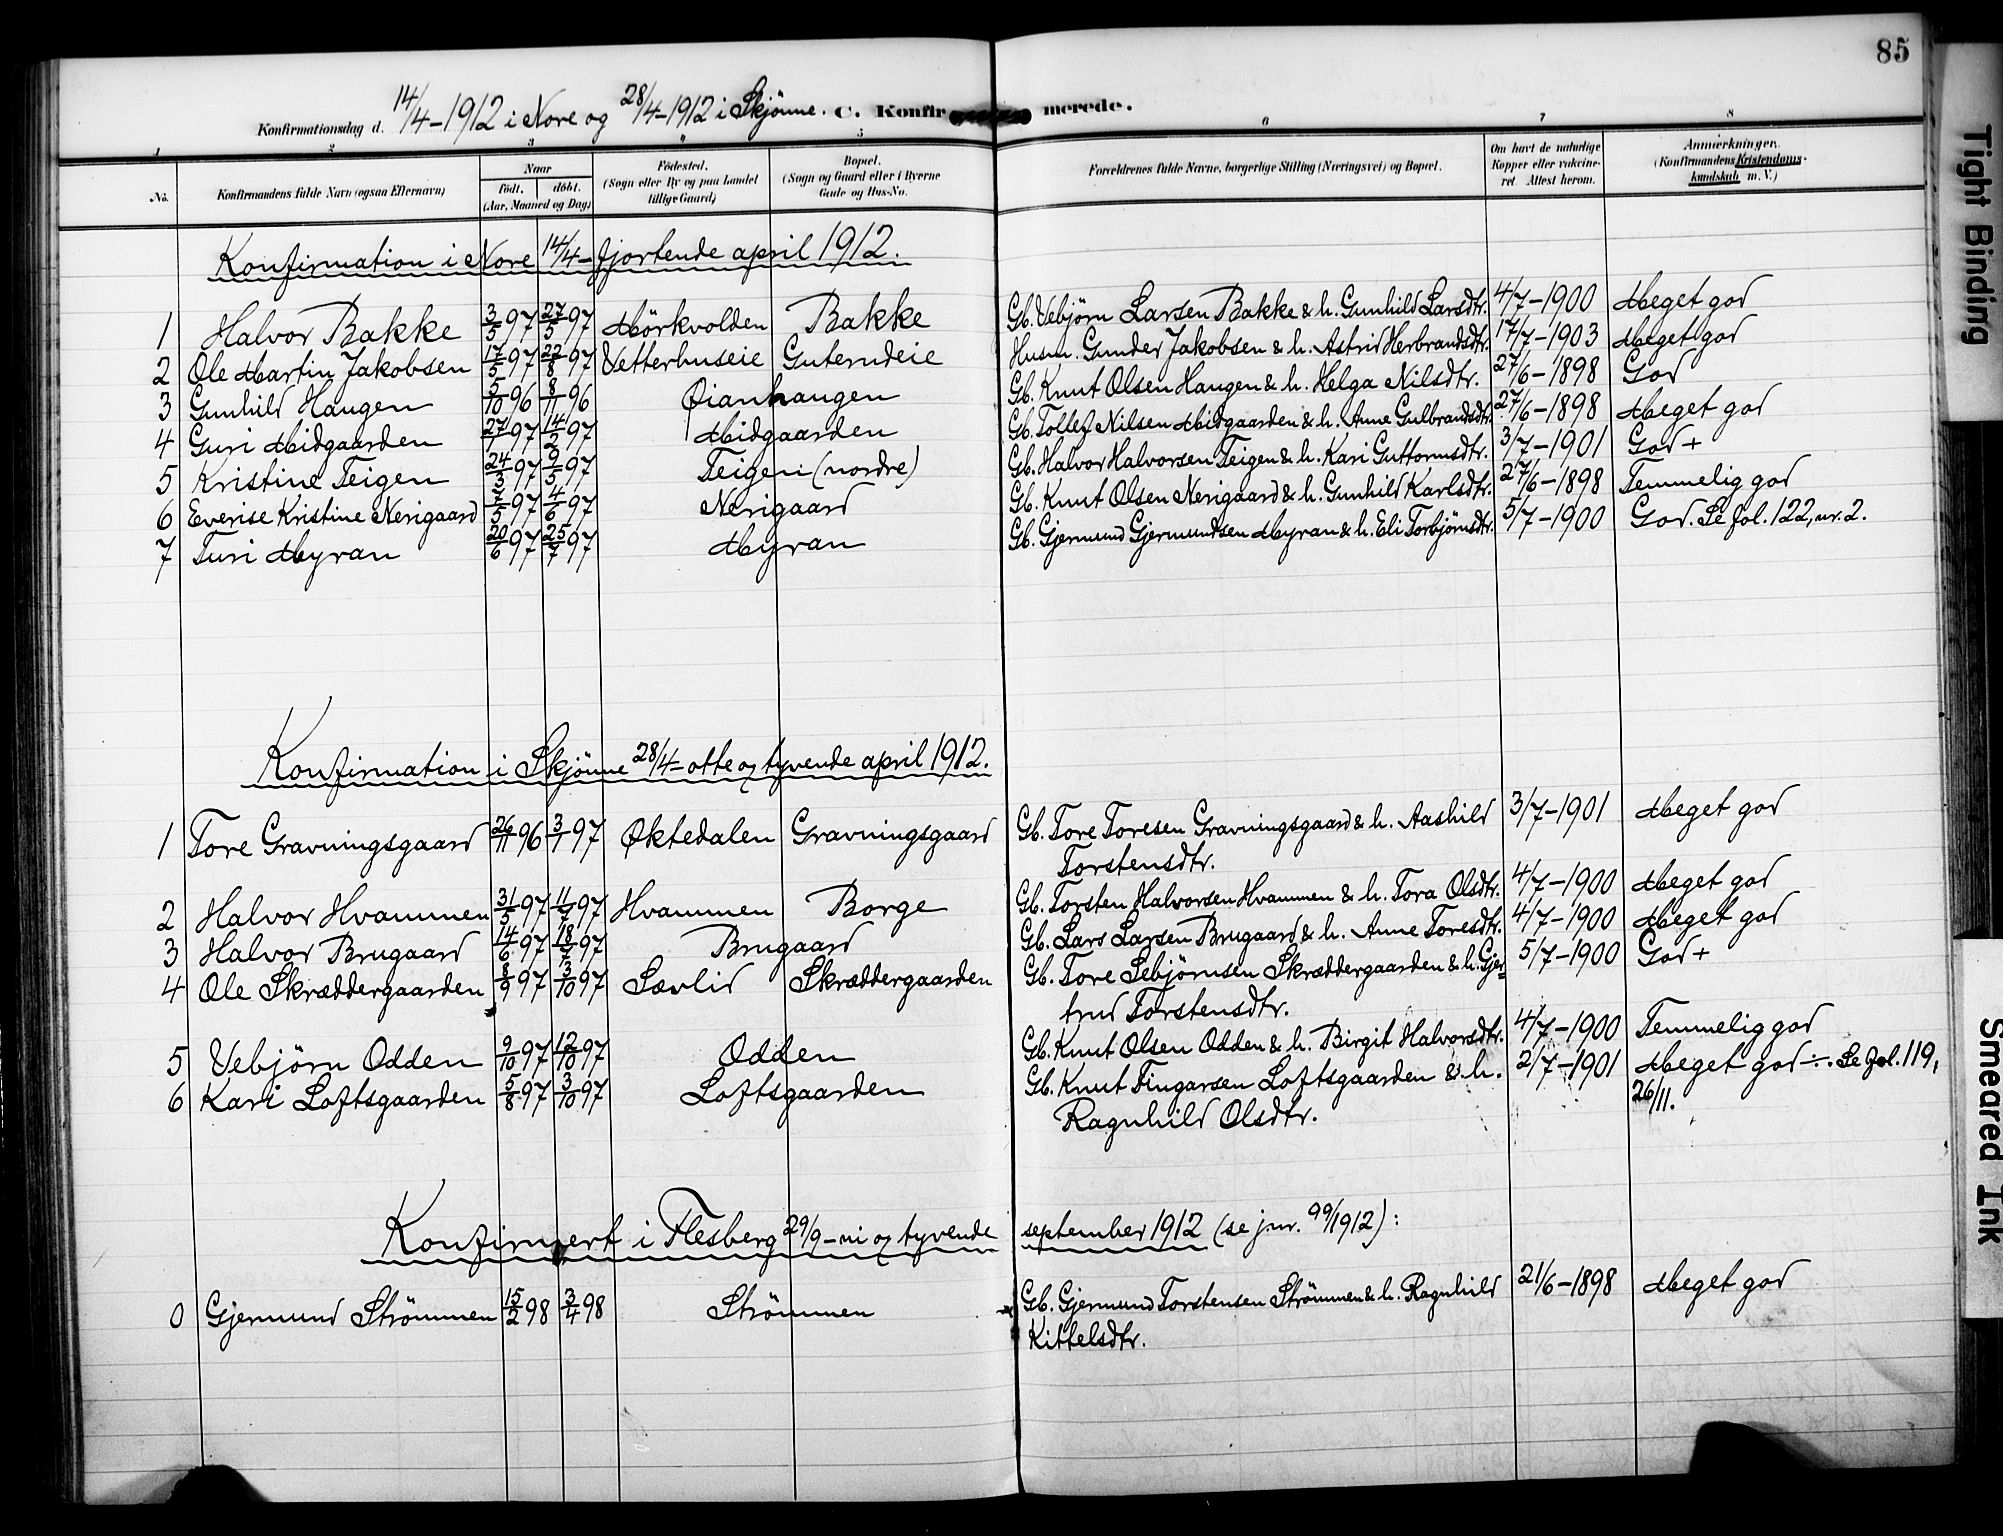 85
Konfirmationsdag d. 14/4-1912 i Nore og 28/4-1912 i Skjönne. C. Konfirmerede.
1 2 3 4 5 6 7 8
No. Konfirmandens fulde Navn (ogsaa Efternavn) Naar født. døbt. (Aar, Maaned og Dag) Fødested. (Sogn eller By og paa Landet tillige Gaard) Bopæl. (Sogn og Gaard eller i Byerne Gade og Hus-No. Forældrenes fulde Navne, borgerlige Stilling (Næringsvei) og Bopæl. Om havt de naturlige Kopper eller vaccineret. Attest herom. Anmærkninger. (Konfirmandens Kristendomskundskab m. V.)
Konfirmation i Nore 14/4- fjortende april 1912.
1 Halvor Bakke 3/5 97 27/5 97 Mörkvolden Bakke Gb. Vebjørn Larsen Bakke & h. Gunhild Larsdtr. 4/7-1900 Meget god
2 Ole Martin Jakobsen 17/5 97 22/8 97 Vetterhuseie Guterudeie Husm. Gunder Jakobsen & h. Astrid Herbrandsdtr. 17/7-1903 Meget god
3 Gunhild Haugen 5/10 96 8/11 96 Øianhaugen Gb. Knut Olsen Haugen & h. Helga Nilsdtr. 27/6-1898 God
4 Guri Midgaarden 27/1 97 14/2 97 Midgaarden Gb. Tollef Nilsen Midgaarden & h. Anne Gulbrandsdtr. 27/6-1898 Meget god
5 Kristine Teigen 24/3 97 9/5 97 Teigen (nordre) Gb. Halvor Halvorsen Teigen & h. Kari Guttormsdtr. 3/7-1901 God +
6 Everise Kristine Nerigaard 7/5 97 4/6 97 Nerigaard Gb. Knut Olsen Nerigaard & h. Gunhild Karlsdtr. 27/6-1898 Temmelig god
7 Turi Myran 20/6 97 25/7 97 Myran Gb. Gjermund Gjermundsen Myran & h. Eli Torbjørnsdtr. 5/7-1900 God. Se fol. 122, nr. 2.
Konfirmation i Skjönne 28/4- otte og tyvende april 1912.
1 Tore Gravningsgaard 26/11 96 3/1 97 Øktedalen Gravningsgaard Gb. Tore Toresen Gravningsgaard & h. Aashild 3/7-1901 Meget god
Torstensdtr.
2 Halvor Hvammen 31/5 97 11/7 97 Hvammen Borge Gb. Torsten Halvorsen Hvammen & h. Tora Olsdtr. 4/7-1900 Meget god
3 Halvor Brugaard 14/6 97 18/7 97 Brugaard Gb. Lars Larsen Brugaard & h. Anne Toresdtr. 4/7-1900 Meget god
4 Ole Skræddergaarden 8/9 97 3/10 97 Sævlid Skræddergaarden Gb. Tore Sebjørnsen Skræddergaarden & h. Gjer- 5/7-1900 God +
trud Torstensdtr.
5 Vebjörn Odden 9/10 97 12/10 97 Odden Gb. Knut Olsen Odden & h. Birgit Halvorsdtr. 4/7-1900 Temmelig god
6 Kari Loftsgaarden 5/8 97 3/10 97 Loftsgaarden Gb. Knut Fingarsen Loftsgaarden & h. 2/7-1901 Meget god ÷. Se fol. 119,
Ragnhild Olsdtr. 26/11.
Konfirmert i Flesberg 29/9- ni og tyvende september 1912 (se jnr. 99/1912):
0 Gjermund Strömmen 15/2 98 3/4 98 Strömmen Gb. Gjermund Torstensen Strömmen & h. Ragnhild 21/6-1898 Meget god
Kittelsdtr.
Tight Binding
Smeared Ink